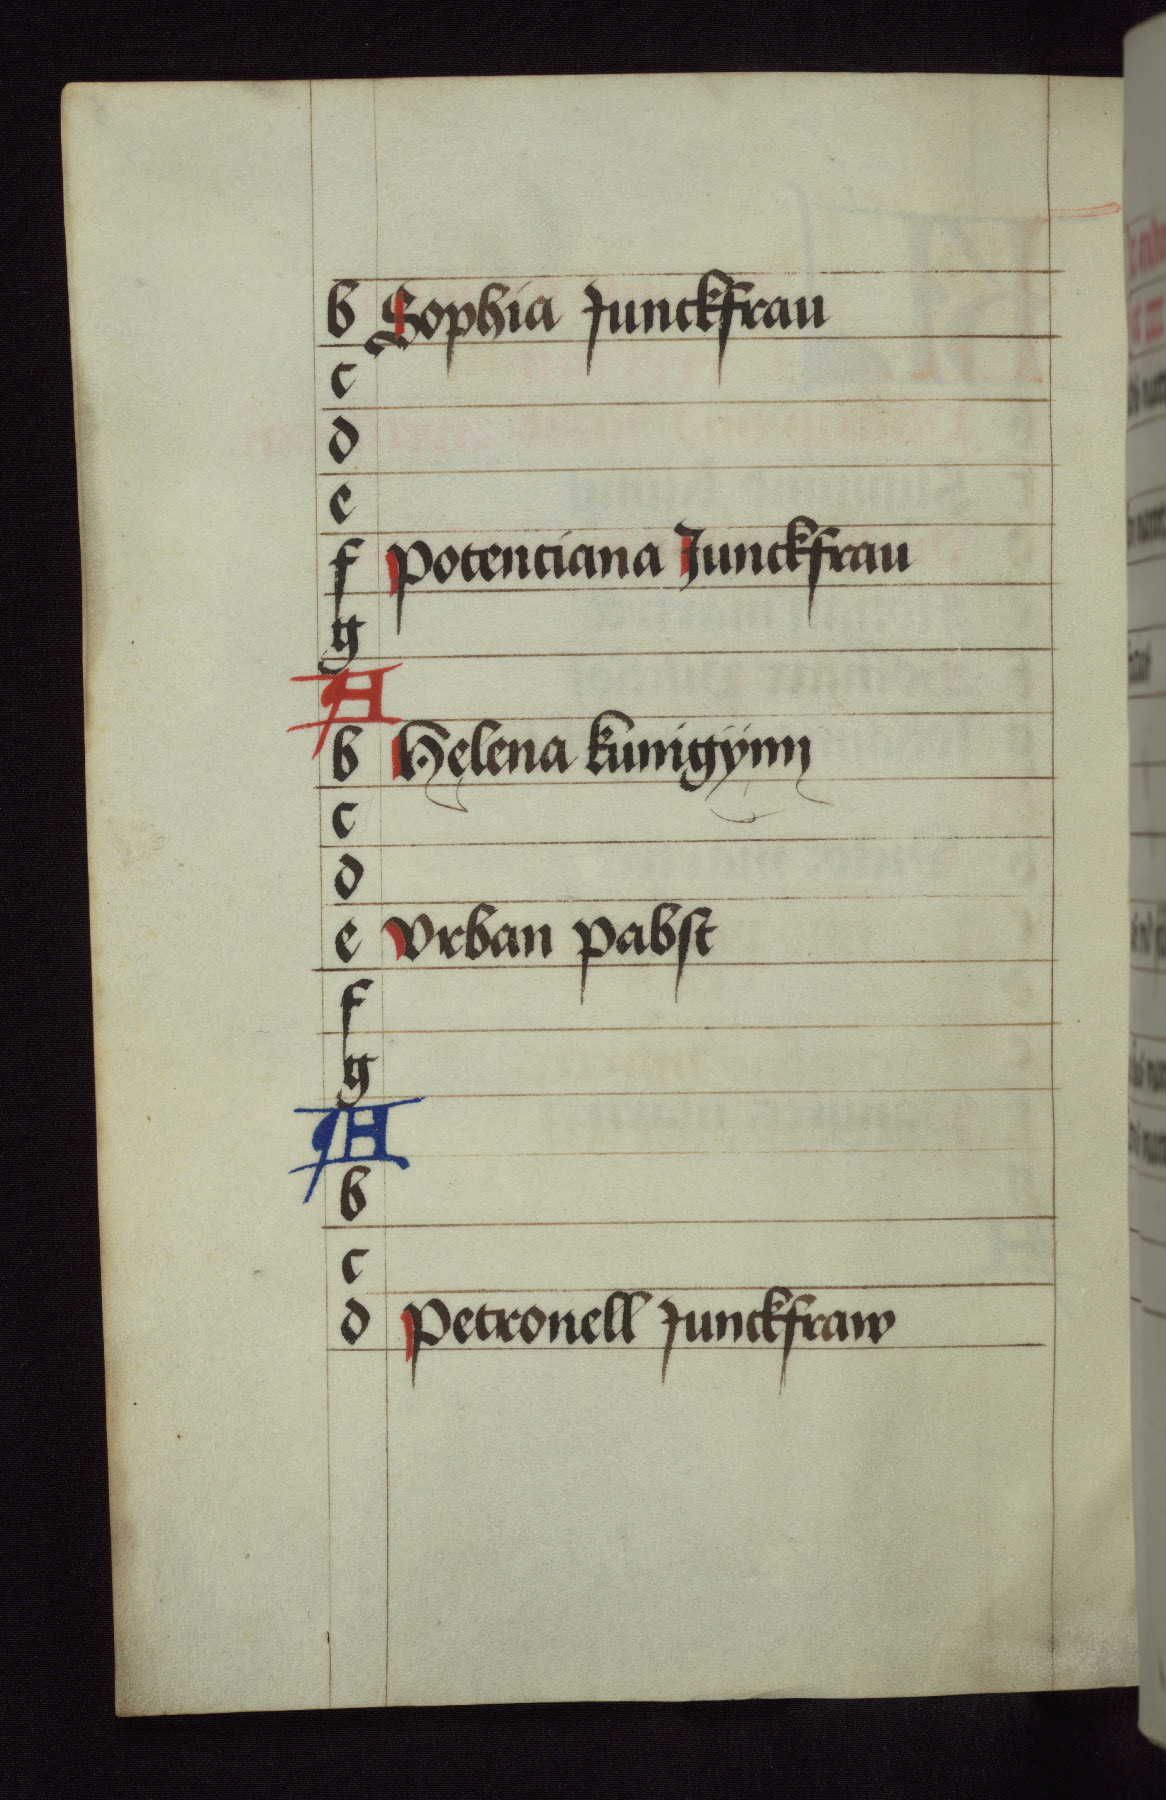 b Sophia Junckfrau
c
d
e
f Potenciana Junckfrau
g
A
b Helena kunigÿnn
c
d
e Vrban pabst
f
g
A
b
c
d Petronell Junckfraw